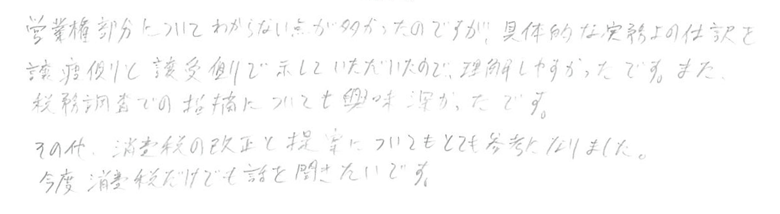 営業権部分についてわからない点が多かったのですが、具体的な実務上の仕訳を
譲渡側と譲受側で示していただいたので、理解しやすかったです。また、
税務調査での指摘についても興味深かったです。
その他、消費税の改正と提案についてもとても参考になりました。
今度消費税だけでも話を聞きたいです。